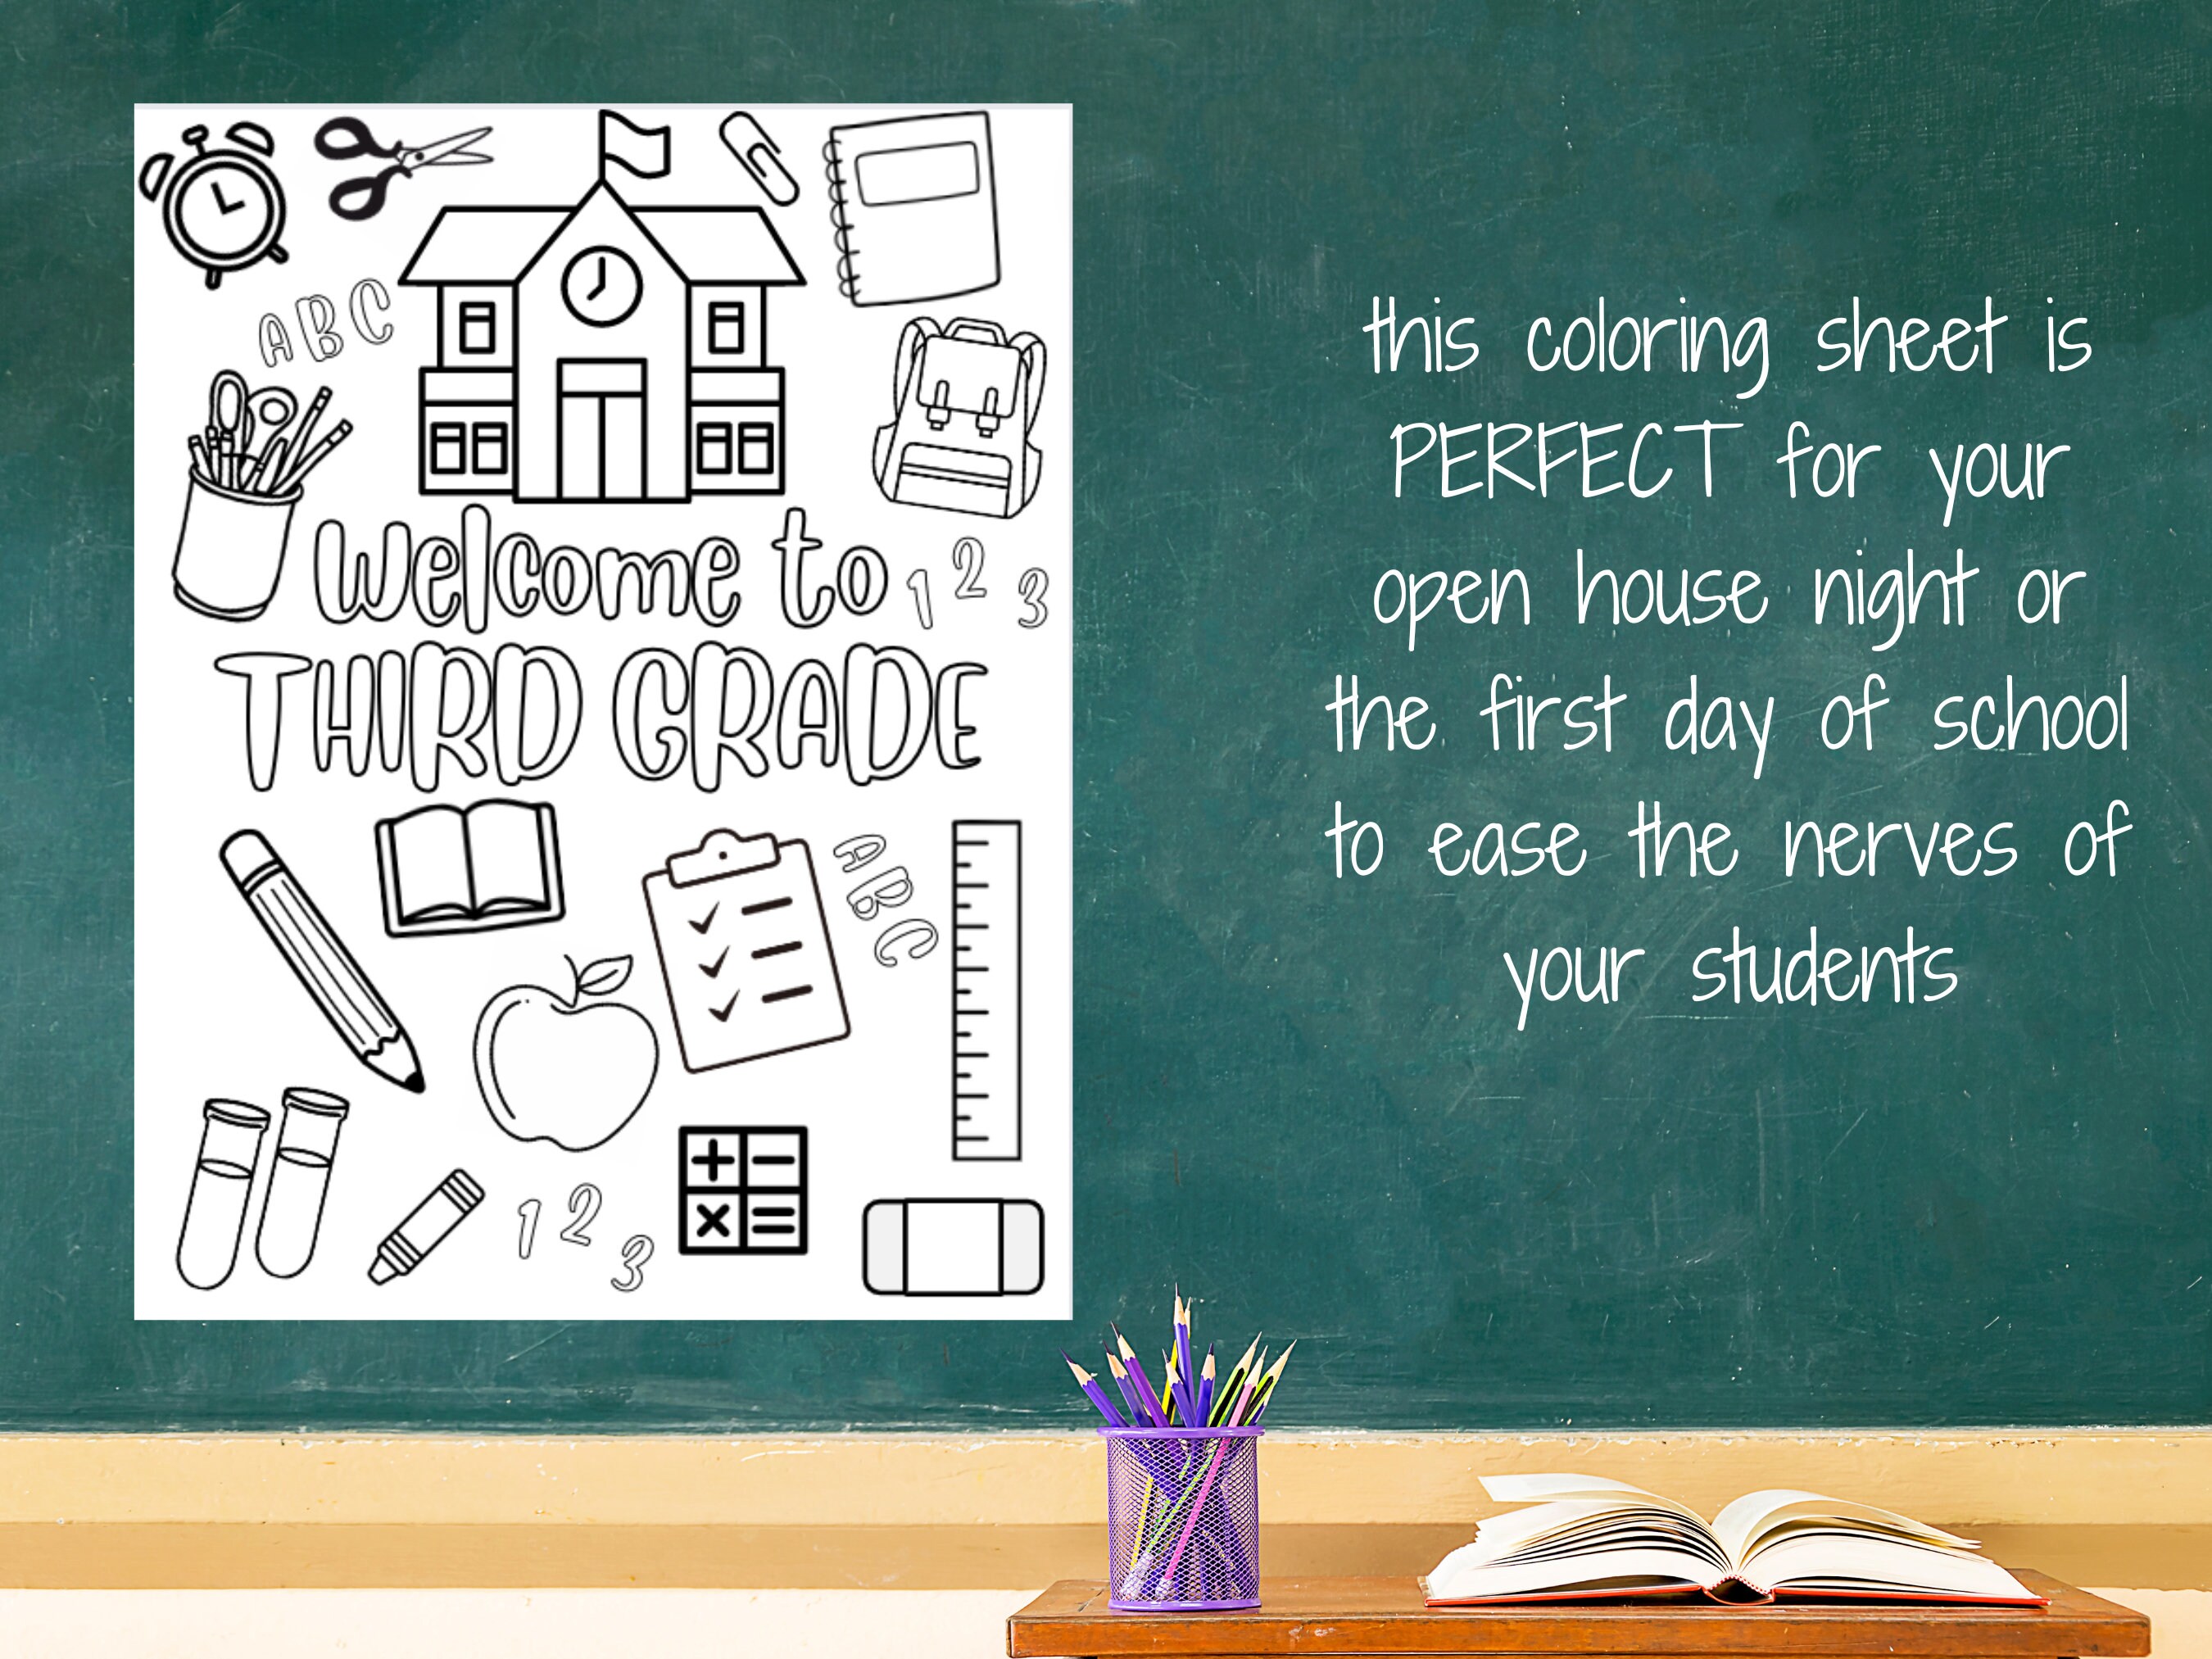 ABC
Welcome to
1 2 3
THIRD GRADE
ABC
+ -
x =
1 2 3
this coloring sheet is
PERFECT for your
open house night or
the first day of school
to ease the nerves of
your students